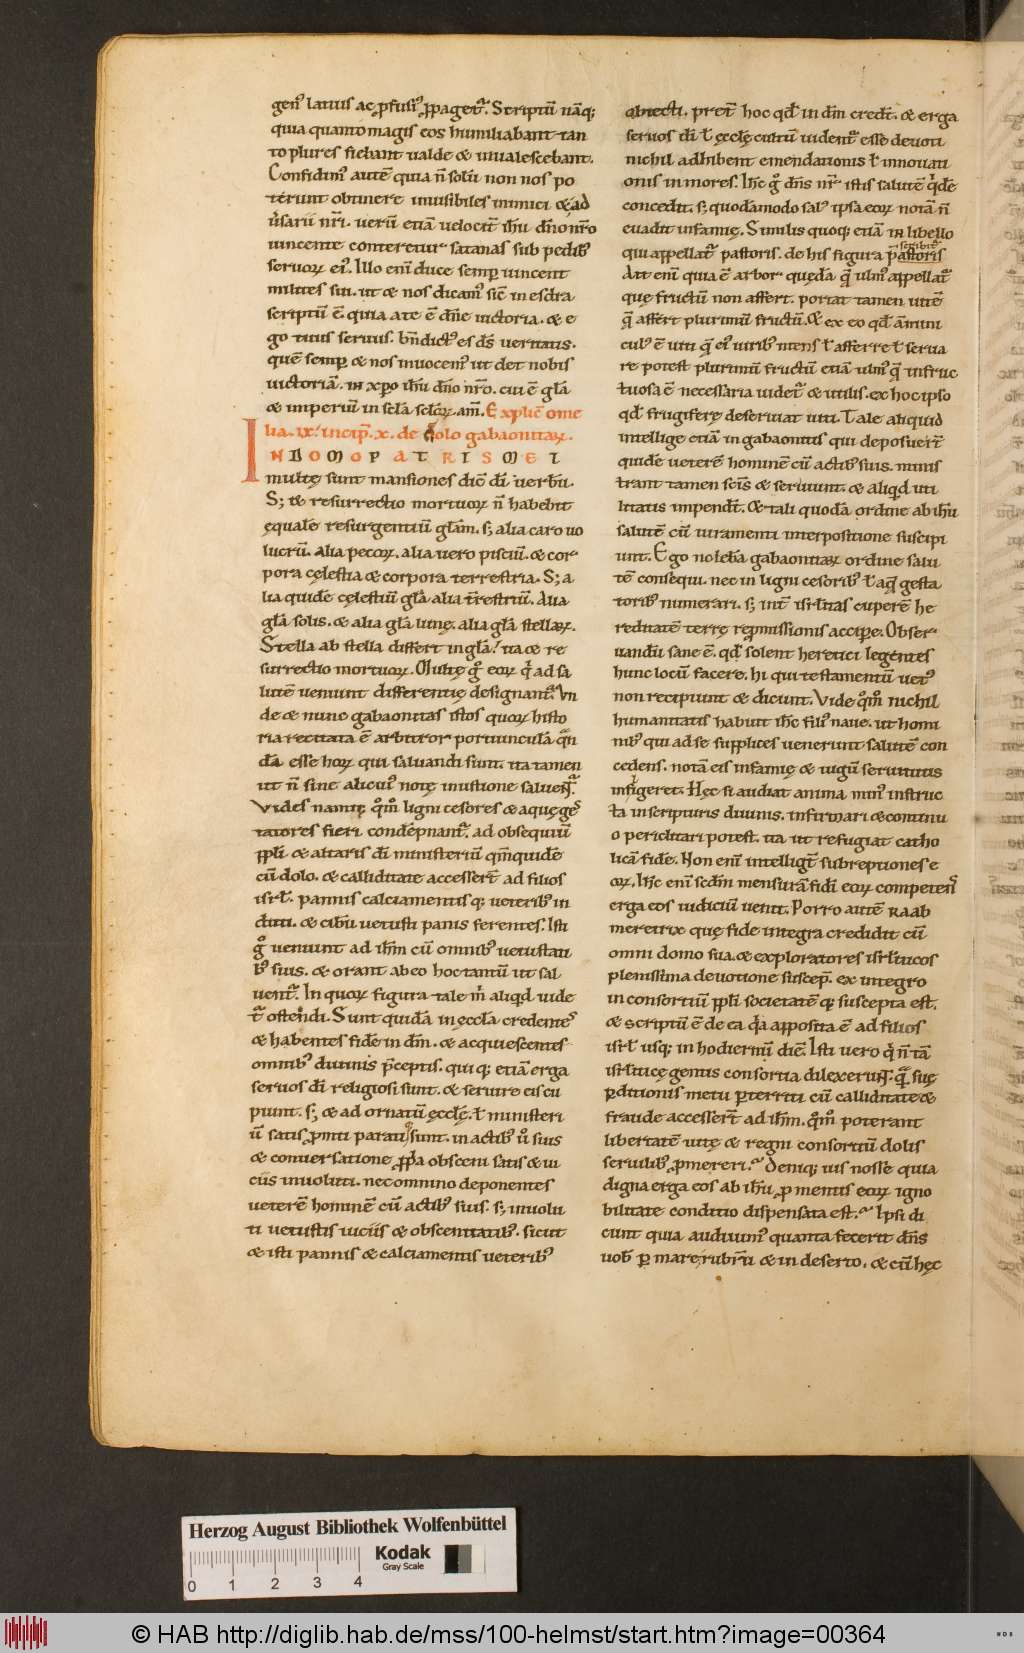 gen' latius ac ꝓfusi' ꝓpaget᷑. Scriptū nāq;
quia quanto magis eos humiliabant tan
to plures fiebant ualde & inualescebant.
Confidim' autē quia ñ solū non nos po
terunt obtinere inuisibiles inimici & ad
u̾sarii nr̄i. uerū etiā uelocit̄ ih̄u dn̄o nr̄o
uincente conteretur satanas sub pedib'
seruoꝝ ei'. Illo eni duce semꝑ uincent
milites sui. ut & nos dicam' sic̄ in esdra
scriptū ē. quia a te ē dn̄e uictoria. & e
go tuus seruus. bn̄dict' es ds̄ ueritatis.
quē semꝑ & nos inuocem' ut det nobis
uictoriā. in xp̄o ih̄u dn̄o nr̄o. cui ē gl̄a
& imperiū in sc̄la sc̄loꝝ. am̄. Explic̄ ome
lia. ix. incip̄. x. de dolo gabaonitaꝝ.
IN DOMO PATRIS MEI
multę sunt mansiones dic̄ dī uerbū.
S; & resurrectio mortuoꝝ ñ habebit
equalē resurgentiū gl̄am. s; alia caro uo
lucrū. alia pecoꝝ. alia uero pisciū. & cor
pora cęlestia & corpora terrestria. S; a
lia quidē cęlestiū gl̄a alia t̄restriū. Alia
gl̄a solis. & alia gl̄a lunę. alia gl̄a stellaꝝ.
Stella ab stella differt in gl̄a. ita & re
surrectio mortuoꝝ. Multę g° eoꝝ q̍ ad sa
lutē ueniunt differentię designant᷑. Vn
de & nunc gabaonitas istos quoꝝ histo
ria recitata ē arbitror portiunculā q̄n
dā esse hoꝝ qui saluandi sunt. ita tamen
ut ñ sine alicui' notę inustione saluent᷑.
Vides namq; qm̊ ligni cesores & aquę ges
tatores fieri condēpnant᷑. ad obsequiū
pp̄li & altaris dī ministeriū qm̄ quidē
cū dolo. & calliditate accesser̄t ad filios
isrl̄. pannis calciamentisq; ueterib' in
duti. & cibū uetusti panis ferentes. Isti
g° ueniunt ad ih̄m cū omnib' uetustati
b' suis. & orant ab eo hoc tantū ut sal
uent᷑. In quoꝝ figura tale m̍ aliqd uide
t᷑ ostendi. Sunt quidā in ęccl̄a credentes
& habentes fidē in dm̄. & acquiescentes
omnib' diuinis p̄ceptis. quiq; etiā erga
seruos dī religiosi sunt. & seruire eis cu
piunt. s; & ad ornatū ęccl̄ę. ł ministeri
ū satis ꝓmti parati sunt. in actib' u° suis
& conuersatione ꝓp̍a obsceni satis & ui
ciis inuoluti. nec omnino deponentes
ueterē hominē cū actib' suis. s; inuolu
ti uetustis uiciis & obscenitatib'. sicut
& isti pannis & calciamentis ueterib'
obiecti. pret̄ hoc qd̄ in dm̄ credt̄. & erga
seruos dī ł ęccl̄ę cultū uident᷑ esse deuoti
nichil adhibent emendationis ł innouati
onis in mores. Ih̄c g° dn̄s nr̄ istis salutē q̍dē
concedit. s; quodāmodo sal' ipsa eoꝝ notā ñ
euadit infamię. Similis quoq; etiā in libello
qui appellat᷑ pastoris. de his figura p̄ scribit᷑ astoris
Ait eni quia ē arbor quędā q̄ ulm' appellat᷑
quę fructū non affert. portat tamen uitē
q̄ affert plurimū fructū. & ex eo qd̄ āmini
cul' ē uiti q̄ ei' uirib' nitens ł afferre ł serua
re potest plurimū fructū etiā ulm' q̄ infruc
tuosa ē necessaria uidet᷑ & utilis. ex hoc ipso
qd̄ frugiferę deseruiat uiti. Tale aliquid
intellige etiā in gabaonitis qui deposuer̄t
quidē ueterē hominē cū actib' suis. minis
trant tamen scīs & seruiunt. & aliqd uti
litatis impendt̄. & tali quodā ordine ab ih̄u
salutē cū iuramenti interpositione suscipi
unt. Ego nolebā gabaonitaꝝ ordine salu
tē consequi. nec in ligni cesorib' ł aq̄ gesta
torib' numerari. s; int̄ isrl̄itas cuperē he
reditatē terrę repmissionis accipe. Obser
uandū sane ē. qd̄ solent heretici legentes
hunc locū facere. hi qui testamentū uet'
non recipiunt & dicunt. Vide qm̊ nichil
humanitatis habuit ih̄c fili' naue. ut homi
nib' qui ad se supplices uenerunt salutē con
cedens. notā eis infamię & iugū seruitutis
infigeret. Hęc si audiat anima min' instruc
ta in scripturis diuinis. infirmari & continu
o periclitari potest. ita ut refugiat catho
licā fidē. Non eni intelligt̄ subreptiones e
oꝝ. Ih̄c eni sc̄dm mensurā fidi eoꝝ competens
erga eos iudiciū uenit. Porro autē raab
meretrix quę fide integra credidit cū
omni domo sua. & exploratores isrl̄iticos
plenissima deuotione suscep̄. ex integro
in consortiū pp̄li societatē q; suscepta est.
& scriptū ē de ea q̍a apposita ē ad filios
isrl̄ usq; in hodiernū diē. Isti uero q̍ ñ tā
isrl̄iticę gentis consortia dilexerunt. q̄ suę
ꝑditionis metu ꝑterriti cū calliditate &
fraude accesser̄t ad ih̄m. qm̊ poterant
libertatē uitę & regni consortiū dolis
seruilib' ꝓmereri. Deniq; uis nosse quia
digna erga eos ab ih̄u ꝓ mentis eoꝝ igno
bilitate conditio dispensata est. Ipsi di
cunt quia audiuim' quanta fecerit dn̄s
uob' ꝑ mare rubrū & in deserto. & cū hęc
Herzog August Bibliothek Wolfenbüttel
Kodak
Gray Scale
0 1 2 3 4
© HAB http://diglib.hab.de/mss/100-helmst/start.htm?image=00364